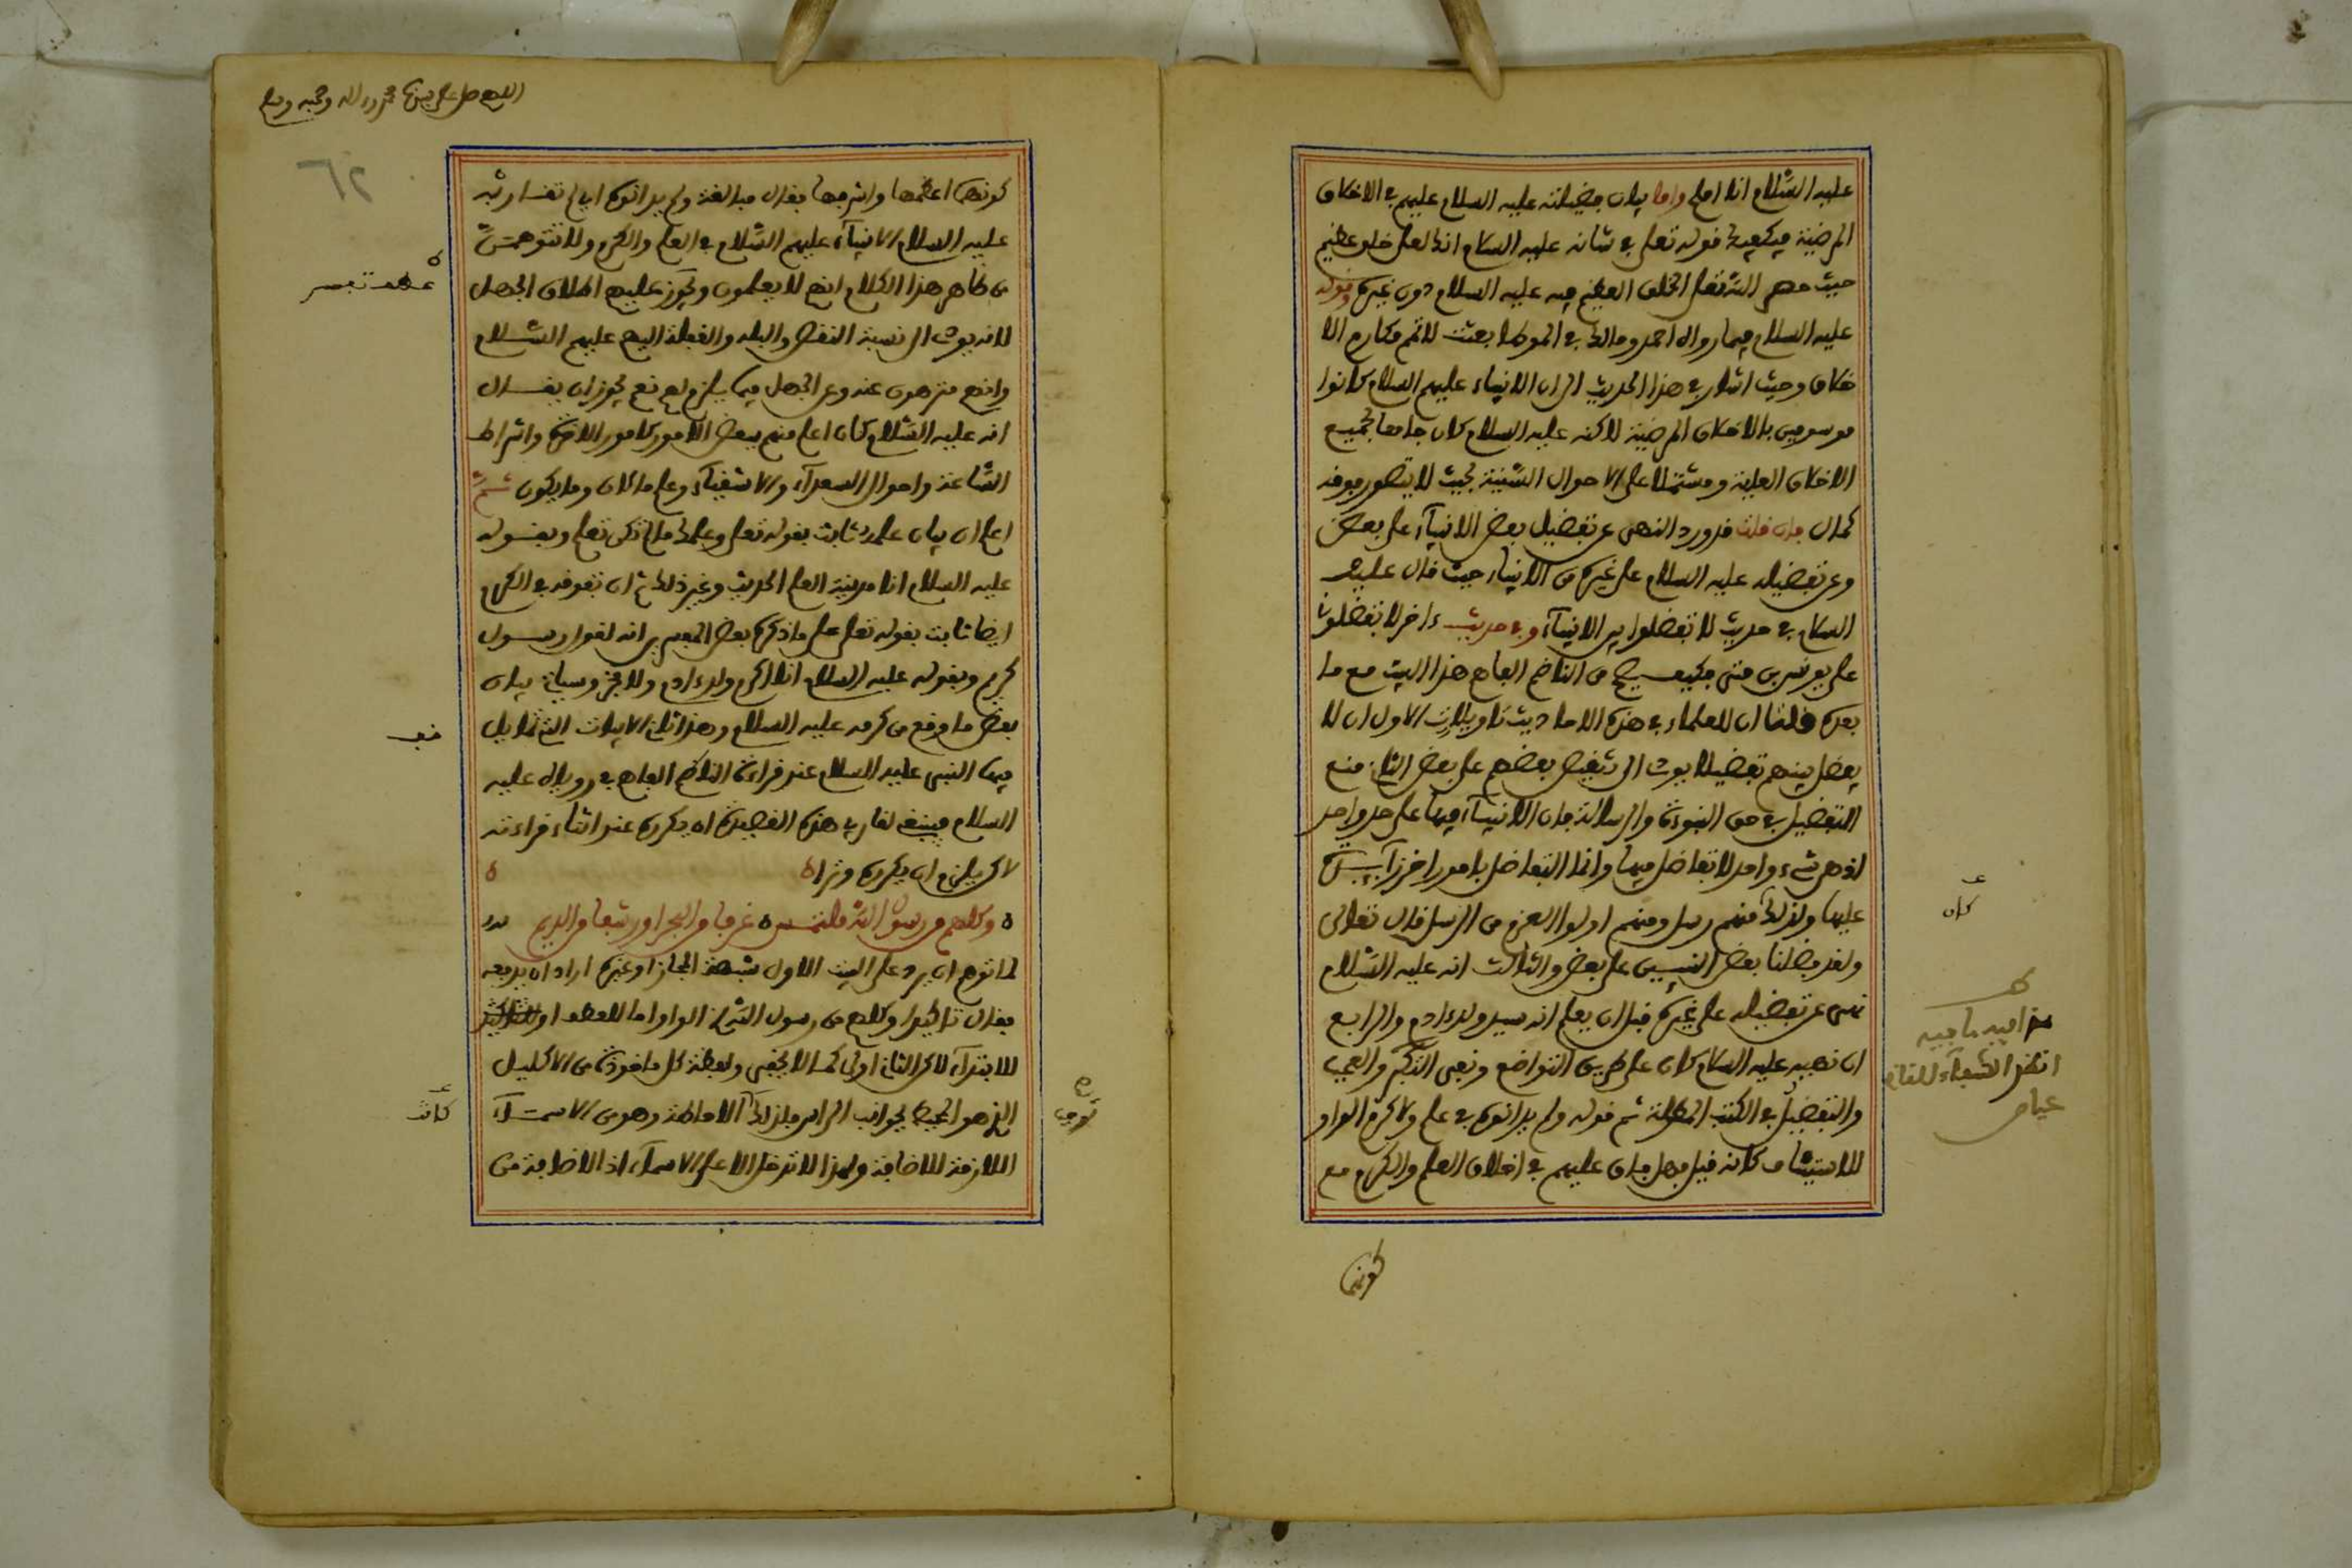 عليه السلام انا املح واما بيان فضيلته عليه السلام عليهم في الاخلاق
المرضية فيكفيك قوله تعلى في شانه عليه السلام انك لعلى خلق عظيم
حيث حصر الله تعلى الخلق العظيم فيه عليه السلام دون غيره وقوله
عليه السلام فيما رواه احمد ومالك في الموطا بعثت لاتمم مكارم الا
خلاق وحيث اشار في هذا الحديث الى ان الانبياء عليهم السلام كانوا
موسومين بالاخلاق المرضية لاكنه عليه السلام كان جامعا لجميع
الاخلاق العلية ومشتملا على الاحوال السنية بحيث لا يتصور فوقه
كمال فان قلت قد ورد النهى عن تفضيل بعض الانبيآء على بعض
وعن تفضيله عليه السلام على غيره من الانبياء حيث قال عليه
السلام في حديث لا تفضلوا بين الانبيآء وفي حديث ءاخر لا تفضلوني
على يونس بن متى فكيف يصح من الناظم الفاهم هذا البيت مع ما
بعده قلنا ان للعلماء في هذه الاحاديث تاويلات الاول ان لا
يفضل بينهم تفضيلا يودى الى تنقيص بعضهم على بعض الثاني منع
التفضيل في حق النبوءة والرسالة فان الانبيآء فيها على حد واحد
اذ هي شيء واحد لا تفاضل فيها وانما التفاضل بامور اخر زايدة
عليها ولذلك منهم رسل ومنهم اولوا العزم من الرسل قال تعالى
ولقد فضلنا بعض النبيين على بعض والثالث انه عليه السلام
نهى عن تفضيله على غيره قبل ان يعلم انه سيد ولد ءادم والرابع
ان نهيه عليه السلام كان على طريق التواضع ونفى التكبر والعجب
والتفضيل في الكتب المطولة ثم قوله ولم يدانوه في علم ولا كرم الواو
للاستيناف كانه قيل فهل فاق عليهم في اخلاق العلم والكرم مع
كان
انظر الشفاء للقاضي
عياض
كونهما
اللهم صل على سيدنا محمد وءاله وصحبه وسلم
٦٢
كونهما اعظمها واشرفها فقال مبالغة ولم يدانوه اي لم تقاربه
عليه السلام الانبيآء عليهم السلام في العلم والكرم ولا تتوهمن
من ظاهر هذا الكلام انهم لا يعلمون ويجوز عليهم اطلاق الجهل
لانه يودى الى نسبة النقص والبله والغفلة اليهم عليهم السلام
وانهم منزهون عنه وعن الجهل فيما يلزم لهم نعم يجوز ان يقال
انه عليه السلام كان اعلم منهم ببعض الامور كامور الاخرة واشراط
الساعة واحوال السعدآء والاشقيآء وعلم ما كان وما يكون ثم
اعلم ان بيان علمه ثابت بقوله تعلى وعلمك ما لم تكن تعلم وبقوله
عليه السلام انا مدينة العلم الحديث وغير ذلك ثم ان تفوقه في الكرم
ايضا ثابت بقوله تعلى على ما ذكره بعض المفسرين انه لقول رسول
كريم وبقوله عليه السلام انا اكرم ولد ءادم ولا فخر وسياتي بيان
بعض ما وقع من كرمه عليه السلام وهذا ثاني الابيات التي تمايل
فيها النبي عليه السلام عند قراءة الناظم الفاهم في روياه عليه
السلام فينبغى لقارئ هذه القصيدة ان يكرره عند اثناء قراءته
لاكن يلزم ان يكرره وترا
وكلهم من رسول الله ملتمس غرفا من البحر او رشفا من الديم
لما توهم ان يرد على البيت الاول شبهة المجاز او غيره اراد ان يدفعه
فقال تاكيدا وكلهم من رسول الله الواو اما للعطف او
للابتدآء لاكن الثاني اولى كما لا يخفى ولفظة كل ماخوذة من الاكليل
الذي هو المحيط بجوانب الراس فلذلك الاحاطة وهو من الاسمآء
اللازمة للاضافة ولهذا لا تدخل الا على الاسمآء اذ الاضافة من
كانت